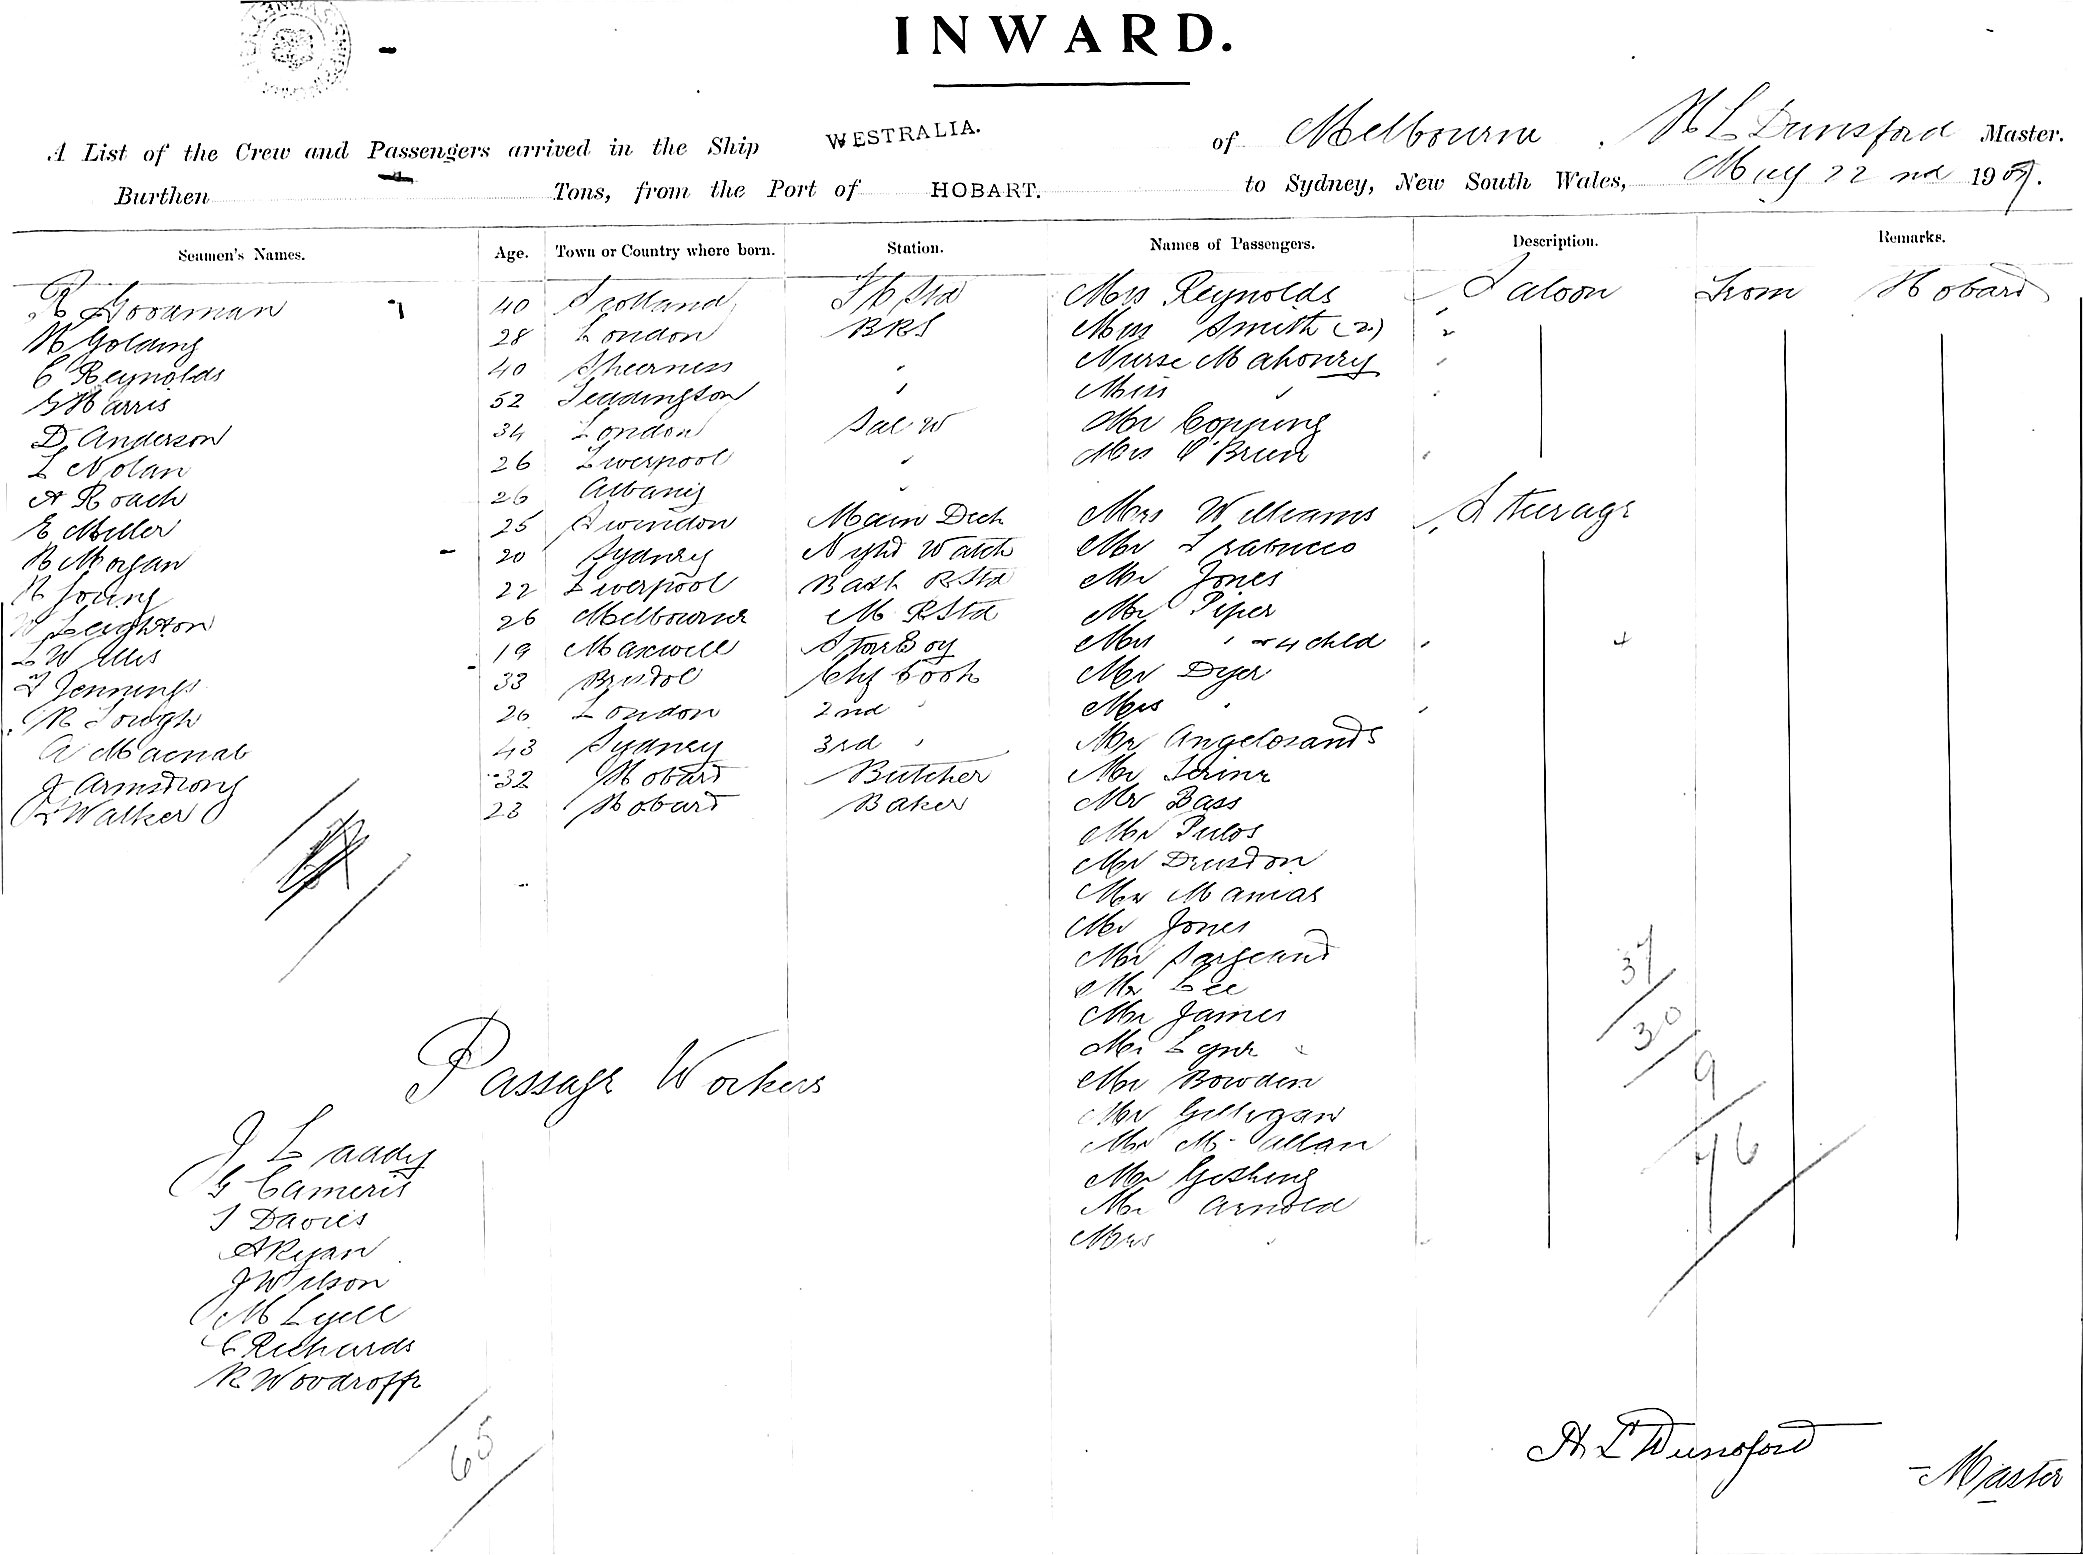 INWARD.
A List of the Crew and Passengers arrived in the Ship WESTRALIA. of Melbourne. H L Dunsford Master.
Burthen Tons, from the Port of HOBART. to Sydney, New South Wales, May 22nd 1909.
Seamen's Names. Age. Town or Country where born. Station. Names of Passengers. Description. Remarks.
R Goodman 40 Scotland Mrs Reynolds Saloon From Hobart
H Golding 28 London BRS Miss Smith (2) "
C Reynolds 40 Sheerness " Nurse Mahoney
G Harris 52 Teddington " Miss "
D Anderson 34 London Sal W Mr Copping
L Nolan 26 Liverpool " Mrs O'Brien
A Roach 26 Albany "
E Miller 25 Swindon Main Deck Mrs Williams Steerage
R Morgan 20 Sydney Night Watch Mr Trabucco
H Young 22 Liverpool Bath R Std Mr Jones
W Leighton 26 Melbourne M R Std Mr Piper
L Willis 19 Maxwell Stor Boy Mrs " + 4 child 4
T Jennings 33 Bristol Chf Cook Mr Dyer
R Tough 26 London 2nd " Mrs "
A Macnab 43 Sydney 3rd " Mr Angelosants
J Armstrong 32 Hobart Butcher Mr
L Walker 23 Hobart Baker Mr Bass
Mr Pulos
Mr
Mr Mamas
Mr Jones
Mr Sargeant
Mr Lee
Mr James
Mr Lyne
Mr Bowden
Mr Gilligan
Mr McAllan
Mr Gething
Mr Arnold
Mrs "
37
30
9
76
Passage Workers
J Laady
G Cameris
T Davies
A Ryan
J Wilson
M Lyell
C Richards
R Woodroffe
65
H L Dunsford
Master